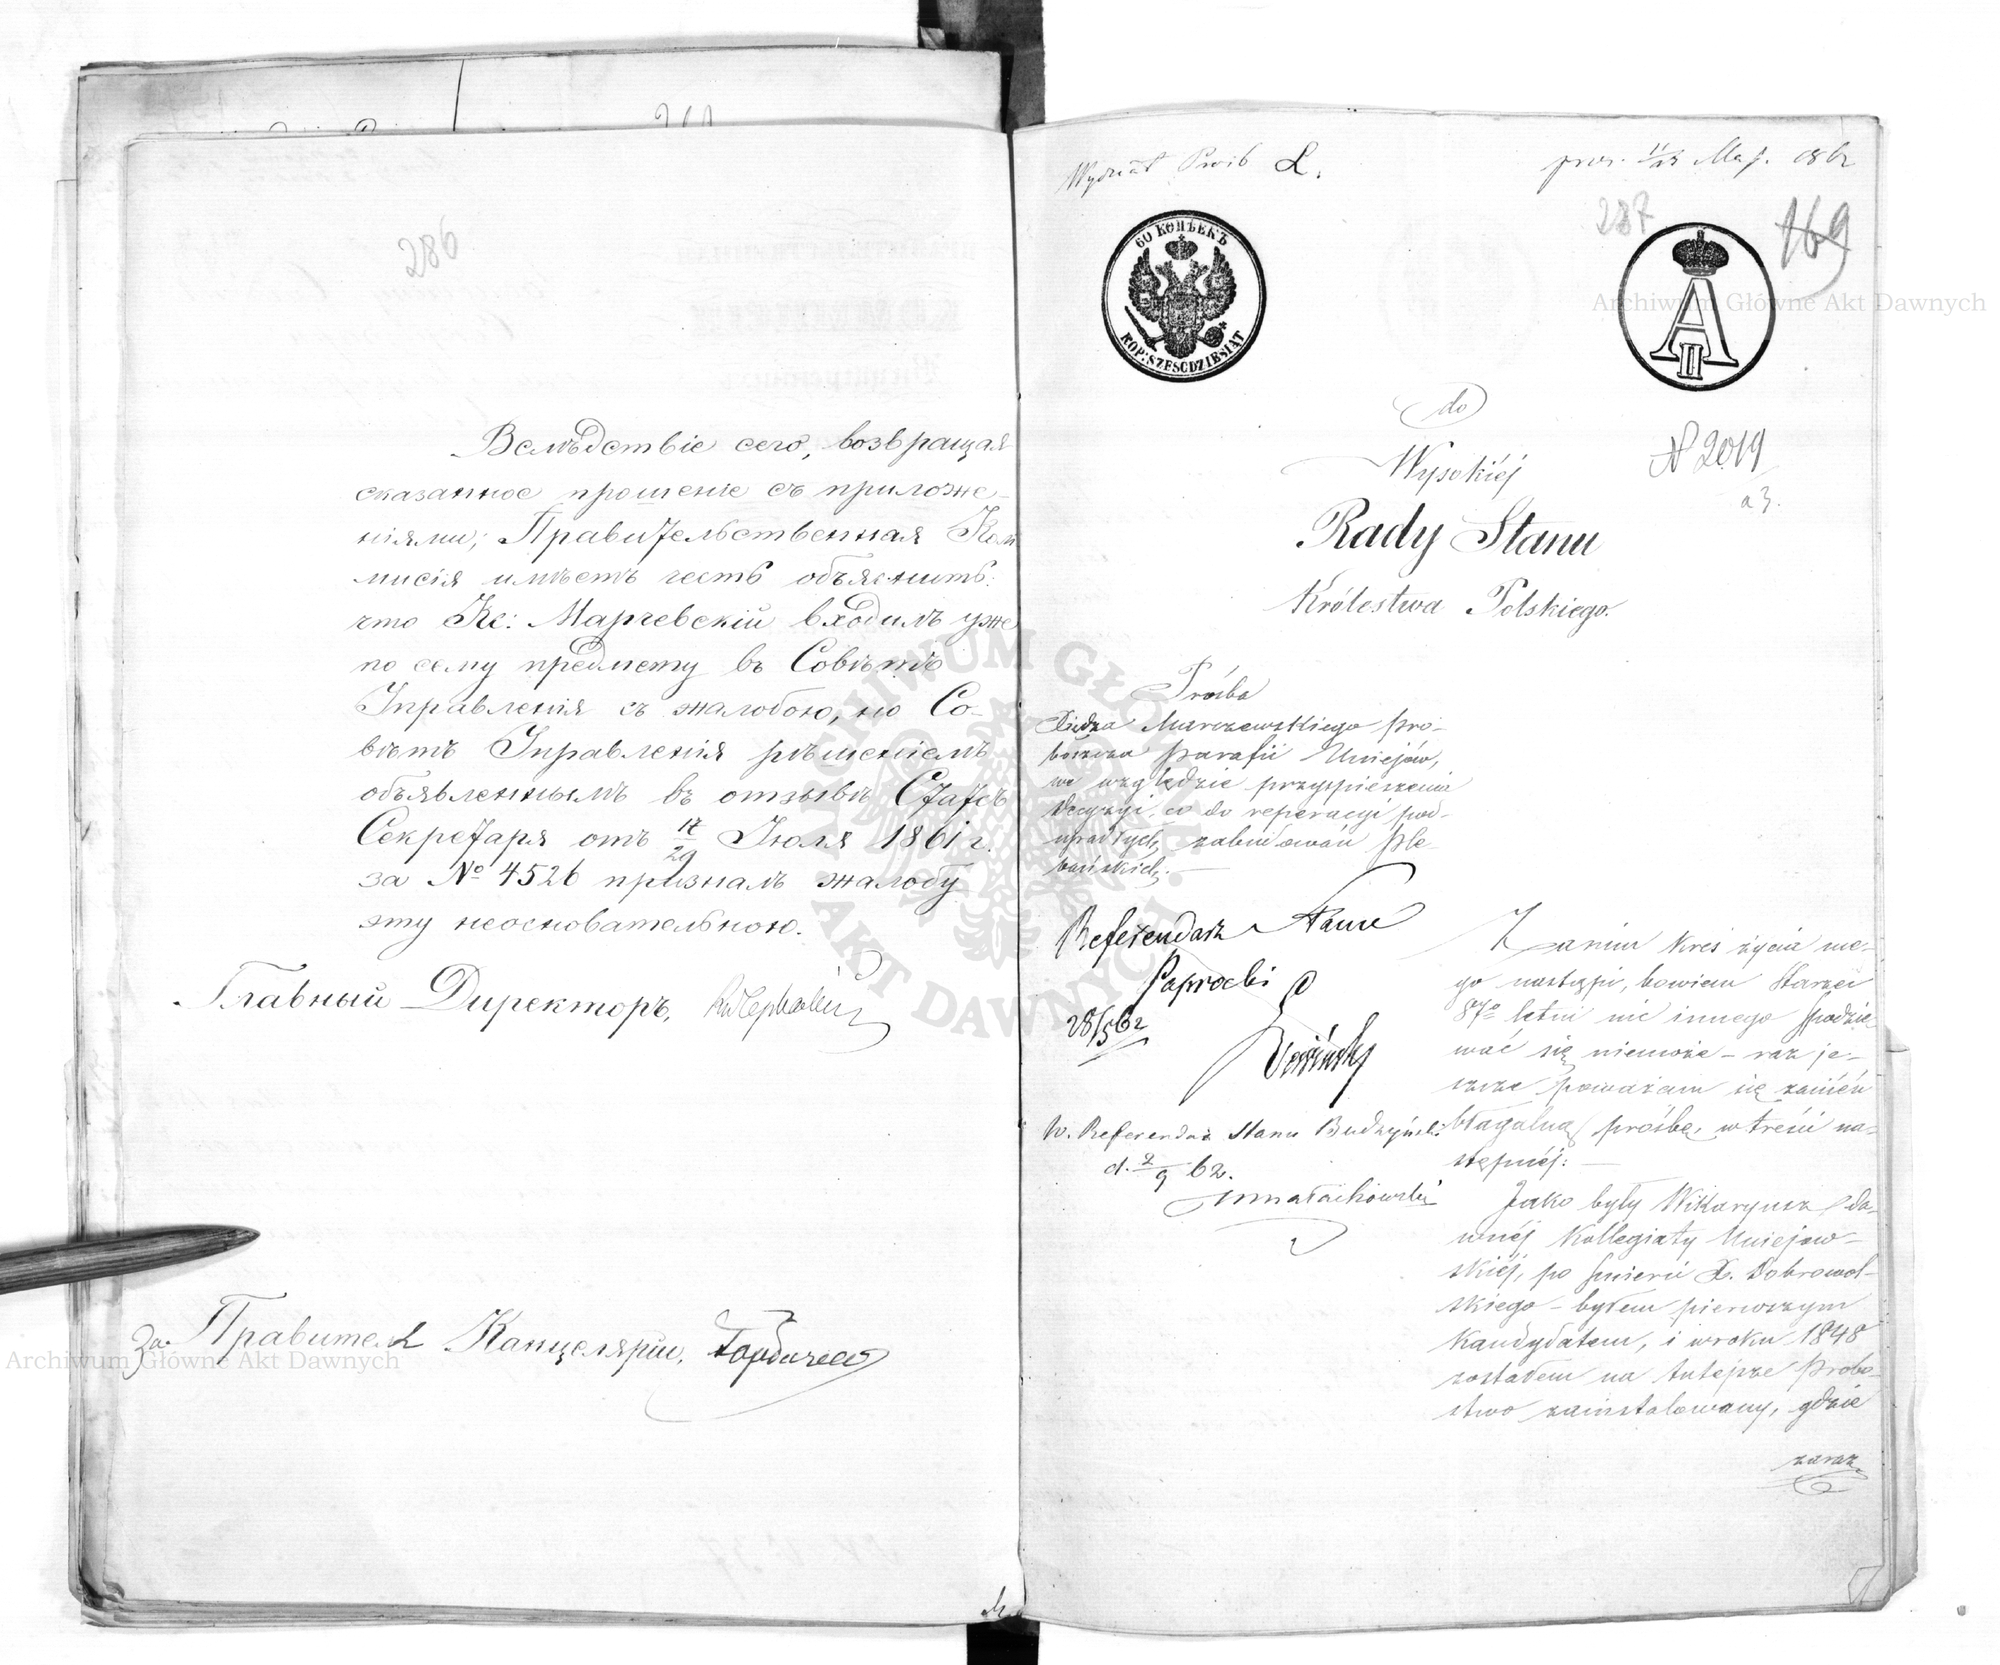 286
Вслѣдствіе сего, возвращая
сказанное прошеніе съ приложе-
ніями, Правительственная Ком
мисія имѣетъ честь объяснить:
что Кс: Марчевскій входилъ уже
по сему предмету въ Совѣтъ
Управленія съ жалобою, но Со-
вѣтъ Управленія рѣшеніемъ
объявленнымъ въ отзывѣ Статсъ
Секретаря отъ 17/29 Іюля 1861 г.
за № 4526 призналъ жалобу
эту неосновательною.
Главный Директоръ,
За Правителя Канцеляріи,
Wydział Próśb L.
prez. 11/23 Maj. 1862
287
169
60 КОПѢЕКЪ
KOP: SZEŚĆDZIESIĄT
A II
do
Wysokiéj
№ 2019
a3.
Rady Stanu
Królestwa Polskiego.
Prośba
Xiędza Marczewskiego pro-
boszcza parafii Uniejów,
we względzie przyspieszenia
decyzyi, co do reperacyi pod-
upadłych zabudowań ple-
bańskich.
Referendarz Stanu
Paprocki
28/5 62
W. Referendarz Stanu Budzyński
d. 2/9 62.
Zanim kres życia me-
go nastąpi, bowiem starzec
87o letni nic innego spodzie-
wać się niemoże – raz je-
szcze poważam się zanieść
błagalną prośbę, w treści na-
stępnéj: —
Jako były Wikaryusz da-
wnéj Kollegiaty Uniejow-
skiéj, po śmierci X. Dobrowol-
skiego – byłem pierwszym
Kandydatem, i w roku 1848
zostałem na tutejsze probo-
stwo zainstalowany, gdzie
zaraz
Archiwum Główne Akt Dawnych
Archiwum Główne Akt Dawnych
ARCHIWUM GŁÓWNE AKT DAWNYCH